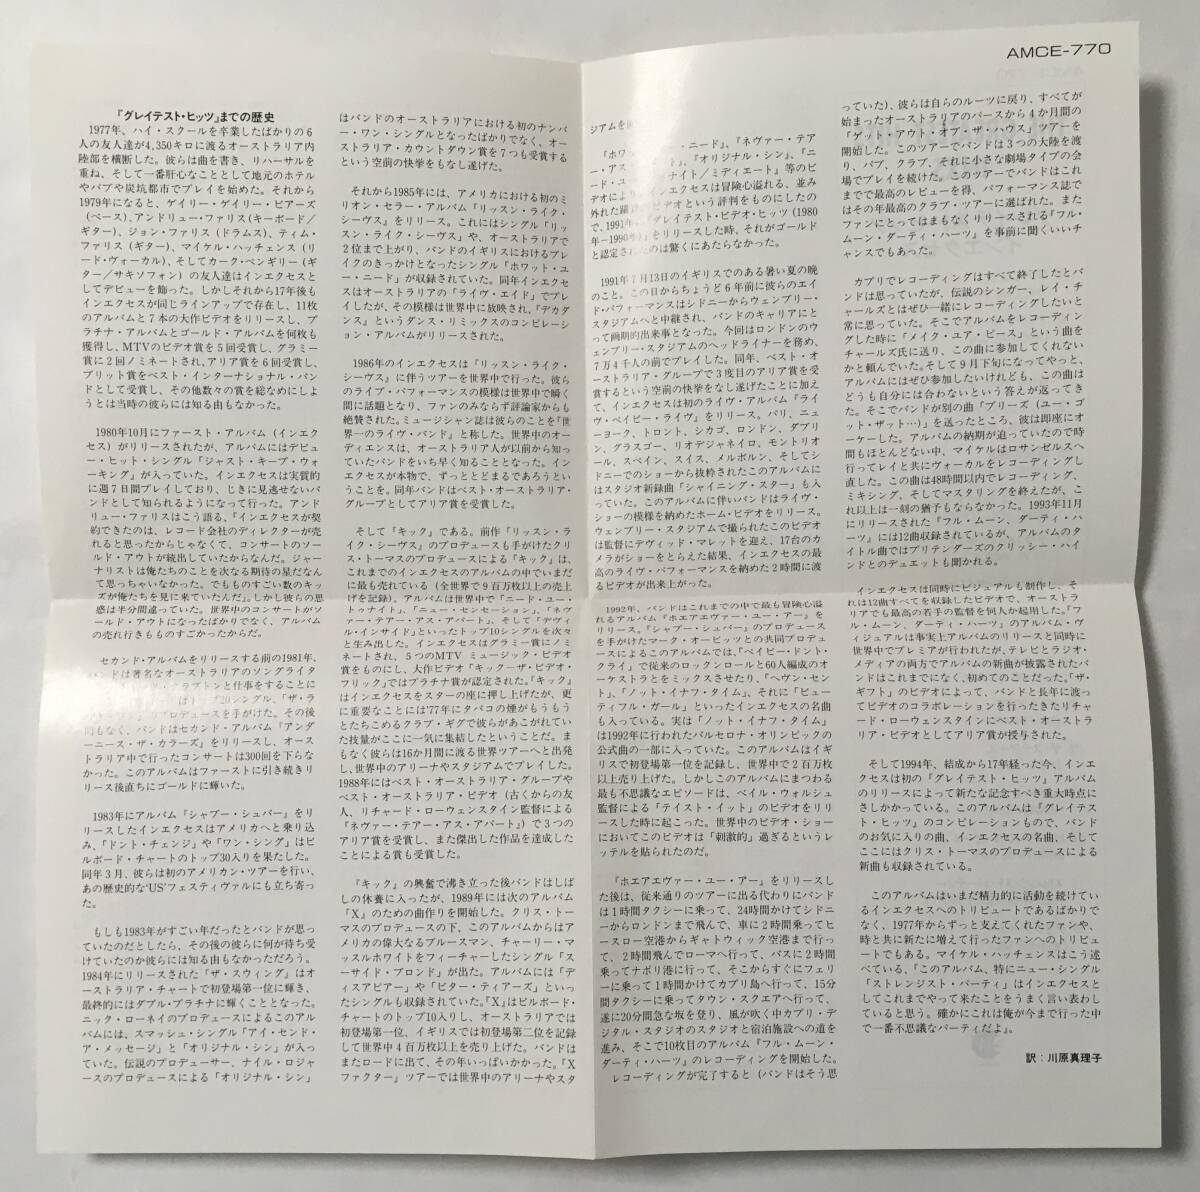 AMCE-770
『グレイテスト・ヒッツ』までの歴史
1977年、ハイ・スクールを卒業したばかりの6
人の友人達が4,350キロに渡るオーストラリア内
陸部を横断した。彼らは曲を書き、リハーサルを
重ね、そして一番肝心なこととして地元のホテル
やパブや炭坑都市でプレイを始めた。それから
1979年になると、ゲイリー・ゲイリー・ビアーズ
(ベース)、アンドリュー・ファリス(キーボード/
ギター)、ジョン・ファリス(ドラムス)、ティム・
ファリス(ギター)、マイケル・ハッチェンス(リ
ード・ヴォーカル)、そしてカーク・ペンギリー(ギ
ター/サキソフォン)の友人達はインエクセスと
してデビューを飾った。しかしそれから17年後も
インエクセスが同じラインアップで存在し、11枚
のアルバムと7本の大作ビデオをリリースし、プ
ラチナ・アルバムとゴールド・アルバムを何枚も
獲得し、MTVのビデオ賞を5回受賞し、グラミー
賞に2回ノミネートされ、アリア賞を6回受賞し、
ブリット賞をベスト・インターナショナル・バン
ドとして受賞し、その他数々の賞を総なめにしよ
うとは当時の彼らには知る由もなかった。
1980年10月にファースト・アルバム(インエク
セス)がリリースされたが、アルバムにはデビュ
ー・ヒット・シングル「ジャスト・キープ・ウォ
ーキング」が入っていた。インエクセスは実質的
に週7日間プレイしており、じきに見逃せないバ
ンドとして知られるようになって行った。アンド
リュー・ファリスはこう語る、『インエクセスが契
約できたのは、レコード会社のディレクターが売
れると思ったからじゃなくて、コンサートのソー
ルド・アウトが続出していたからなんだ。ジャー
ナリストは俺たちのことを次なる期待の星だなん
て思っちゃいなかった。でもものすごい数のキッ
ズが俺たちを見に来ていたんだ』。しかし彼らの思
惑は半分間違っていた。世界中のコンサートがソ
ールド・アウトになったばかりでなく、アルバム
の売れ行きもものすごかったからだ。
セカンド・アルバムをリリースする前の1981年、
バンドは著名なオーストラリアのソングライタ
クラプトンと仕事をすることに
20シングル、「ザ・ラ
のプロデュースを手がけた。その後
間もなく、バンドはセカンド・アルバム『アンダ
ーニース・ザ・カラーズ』をリリースし、オース
トラリア中で行ったコンサートは300回を下らな
かった。このアルバムはファーストに引き続きリ
リース後直ちにゴールドに輝いた。
1983年にアルバム『シャブー・シュバー』をリ
リースしたインエクセスはアメリカへと乗り込
み、「ドント・チェンジ」や「ワン・シング」はビ
ルボード・チャートのトップ30入りを果たした。
同年3月、彼らは初のアメリカン・ツアーを行い、
あの歴史的な‘US’フェスティヴァルにも立ち寄っ
た。
もしも1983年がすごい年だったとバンドが思っ
ていたのだとしたら、その後の彼らに何が待ち受
けていたのか彼らには知る由もなかっただろう。
1984年にリリースされた『ザ・スウィング』はオ
ーストラリア・チャートで初登場第一位に輝き、
最終的にはダブル・プラチナに輝くこととなった。
ニック・ローネイのプロデュースによるこのアル
バムには、スマッシュ・シングル「アイ・センド・
ア・メッセージ」と「オリジナル・シン」が入っ
ていた。伝説のプロデューサー、ナイル・ロジャ
ースのプロデュースによる「オリジナル・シン」
はバンドのオーストラリアにおける初のナンバ
ー・ワン・シングルとなったばかりでなく、オー
ストラリア・カウントダウン賞を7つも受賞する
という空前の快挙をもなし遂げた。
それから1985年には、アメリカにおける初のミ
リオン・セラー・アルバム『リッスン・ライク・
シーヴス』をリリース。これにはシングル「リッ
スン・ライク・シーヴス」や、オーストラリアで
2位まで上がり、バンドのイギリスにおけるブレ
イクのきっかけとなったシングル「ホワット・ユ
ー・ニード」が収録されていた。同年インエクセ
スはオーストラリアの「ライヴ・エイド」でプレ
イしたが、その模様は世界中に放映され、『デカダ
ンス』というダンス・リミックスのコンピレーシ
ョン・アルバムがリリースされた。
1986年のインエクセスは『リッスン・ライク・
シーヴス』に伴うツアーを世界中で行った。彼ら
のライブ・パフォーマンスの模様は世界中で瞬く
間に話題となり、ファンのみならず評論家からも
絶賛された。ミュージシャン誌は彼らのことを『世
界一のライヴ・バンド』と称した。世界中のオー
ディエンスは、オーストラリア人が以前から知っ
ていたバンドをいち早く知ることとなった。イン
エクセスが本物で、ずっととどまるであろうとい
うことを。同年バンドはベスト・オーストラリア・
グループとしてアリア賞を受賞した。
そして『キック』である。前作『リッスン・ラ
イク・シーヴス』のプロデュースも手がけたクリ
ス・トーマスのプロデュースによる『キック』は、
これまでのインエクセスのアルバムの中でいまだ
に最も売れている(全世界で9百万枚以上の売上
げを記録)。アルバムは世界中で「ニード・ユー・
トゥナイト」、「ニュー・センセーション」、「ネヴ
ァー・テアー・アス・アパート」、そして「デヴィ
ル・インサイド」といったトップ10シングルを次々
と生み出した。インエクセスはグラミー賞にノミ
ネートされ、5つのMTV ミュージック・ビデオ
賞をものにし、大作ビデオ『キック―ザ・ビデオ・
フリック』ではプラチナ賞が認定された。『キック』
はインエクセスをスターの座に押し上げたが、更
に重要なことには'77年にタバコの煙がもうもう
とたちこめるクラブ・ギグで彼らがあこがれてい
た技量がここに一気に集結したということだ。ま
もなく彼らは16か月間に渡る世界ツアーへと出発
し、世界中のアリーナやスタジアムでプレイした。
1988年にはベスト・オーストラリア・グループや
ベスト・オーストラリア・ビデオ(古くからの友
人、リチャード・ローウェンスタイン監督による
『ネヴァー・テアー・アス・アパート』)で3つの
アリア賞を受賞し、また傑出した作品を達成した
ことによる賞も受賞した。
『キック』の興奮で沸き立った後バンドはしば
しの休養に入ったが、1989年には次のアルバム
『X』のための曲作りを開始した。クリス・トー
マスのプロデュースの下、このアルバムからはア
メリカの偉大なブルースマン、チャーリー・マ
ッスルホワイトをフィーチャーしたシングル「ス
ーサイド・ブロンド」が出た。アルバムには「デ
ィスアピアー」や「ビター・ティアーズ」といっ
たシングルも収録されていた。『X』はビルボード・
チャートのトップ10入りし、オーストラリアでは
初登場第一位、イギリスでは初登場第二位を記録
して世界中4百万枚以上を売り上げた。バンドは
またロードに出て、その年いっぱいかかった。『X
ファクター』ツアーでは世界中のアリーナやスタ
ジアムを
『ホワ ニード』、『ネヴァー・テア
ー・アス 』、『オリジナル・シン』、『ニ
ード・ユ ナイト/ミディエート』等のビ
デオによ インエクセスは冒険心溢れる、並み
外れた躍 ビデオという評判をものにしたの
で、1991年 グレイテスト・ビデオ・ヒッツ(1980
年-1990年)』をリリースした時、それがゴールド
と認定されたのは驚くにあたらなかった。
1991年7月13日のイギリスでのある暑い夏の晩
のこと。この日からちょうど6年前に彼らのエイ
ド・パフォーマンスはシドニーからウェンブリー・
スタジアムへと中継され、バンドのキャリアにと
って画期的出来事となった。今回はロンドンのウ
ェンブリー・スタジアムのヘッドライナーを務め、
7万4千人の前でプレイした。同年、ベスト・オ
ーストラリア・グループで3度目のアリア賞を受
賞するという空前の快挙をなし遂げたことに加え
て、インエクセスは初のライヴ・アルバム『ライ
ヴ・ベイビー・ライヴ』をリリース。パリ、ニュ
ーヨーク、トロント、シカゴ、ロンドン、ダブリ
ン、グラスゴー、リオデジャネイロ、モントリオ
ール、スペイン、スイス、メルボルン、そしてシ
ドニーでのショーから抜粋されたこのアルバムに
はスタジオ新録曲「シャイニング・スター」も入
っていた。このアルバムに伴いバンドはライヴ・
ショーの模様を納めたホーム・ビデオをリリース。
ウェンブリー・スタジアムで撮られたこのビデオ
は監督にデヴィッド・マレットを迎え、17台のカ
メラがショーをとらえた結果、インエクセスの最
高のライヴ・パフォーマンスを納めた2時間に渡
るビデオが出来上がった。
1992年、バンドはこれまでの中で最も冒険心溢
れるアルバム『ホエアエヴァー・ユー・アー』を
リリース。『シャブー・シュバー』のプロデュース
を手がけたマーク・オービッツとの共同プロデュ
ースによるこのアルバムでは、「ベイビー・ドント・
クライ」で従来のロックンロールと60人編成のオ
ーケストラとをミックスさせたり、「ヘヴン・セン
ト」、「ノット・イナフ・タイム」、それに「ビュー
ティフル・ガール」といったインエクセスの名曲
も入っている。実は「ノット・イナフ・タイム」
は1992年に行われたバルセロナ・オリンピックの
公式曲の一部に入っていた。このアルバムはイギ
リスで初登場第一位を記録し、世界中で2百万枚
以上売り上げた。しかしこのアルバムにまつわる
最も不思議なエピソードは、ベイル・ウォルシュ
監督による「テイスト・イット」のビデオをリリ
ースした時に起こった。世界中のビデオ・ショー
においてこのビデオは「刺激的」過ぎるというレ
ッテルを貼られたのだ。
『ホエアエヴァー・ユー・アー』をリリースし
た後は、従来通りのツアーに出る代わりにバンド
は1時間タクシーに乗って、24時間かけてシドニ
ーからロンドンまで飛んで、車に2時間乗ってヒ
ースロー空港からギャトウィック空港まで行っ
て、2時間飛んでローマへ行って、バスに2時間
乗ってナポリ港に行って、そこからすぐにフェリ
ーに乗って1時間かけてカプリ島へ行って、15分
間タクシーに乗ってタウン・スクエアへ行って、
遂に20分間急な坂を登り、風が吹く中カプリ・デ
ジタル・スタジオのスタジオと宿泊施設への道を
進み、そこで10枚目のアルバム『フル・ムーン・
ダーティ・ハーツ』のレコーディングを開始した。
レコーディングが完了すると(バンドはそう思
っていた)、彼らは自らのルーツに戻り、すべてが
始まったオーストラリアのパースから4か月間の
「ゲット・アウト・オブ・ザ・ハウス」ツアーを
開始した。このツアーでバンドは3つの大陸を渡
り、パブ、クラブ、それに小さな劇場タイプの会
場でプレイを続けた。このツアーでバンドはこれ
までで最高のレビューを得、パフォーマンス誌で
はその年最高のクラブ・ツアーに選ばれた。また
ファンにとってはまもなくリリースされる『フル・
ムーン・ダーティ・ハーツ』を事前に聞くいいチ
ャンスでもあった。
カプリでレコーディングはすべて終了したとバ
ンドは思っていたが、伝説のシンガー、レイ・チ
ャールズとはぜひ一緒にレコーディングしたいと
常に思っていた。そこでアルバムをレコーディン
グした時に「メイク・ユア・ピース」という曲を
チャールズ氏に送り、この曲に参加してくれない
かと頼んでいた。そして9月下旬になってやっと、
アルバムにはぜひ参加したいけれども、この曲は
どうも自分には合わないという答えが返ってき
た。そこでバンドが別の曲「プリーズ(ユー・ゴ
ット・ザット…)」を送ったところ、彼は即座にオ
ーケーした。アルバムの納期が迫っていたので時
間もほとんどない中、マイケルはロサンゼルスへ
行ってレイと共にヴォーカルをレコーディングし
直した。この曲は48時間以内でレコーディング、
ミキシング、そしてマスタリングを終えたが、こ
れ以上は一刻の猶予もならなかった。1993年11月
にリリースされた『フル・ムーン、ダーティ・ハ
ーツ』には12曲収録されているが、アルバムのタ
イトル曲ではプリテンダーズのクリッシー・ハイ
ンドとのデュエットも聞かれる。
インエクセスは同時にビジュアルも制作し、そ
れは12曲すべてを収録したビデオで、オーストラ
リアでも最高の若手の監督を何人か起用した。『フ
ル・ムーン、ダーティ・ハーツ』のアルバム・ヴ
ィジュアルは事実上アルバムのリリースと同時に
世界中でプレミアが行われたが、テレビとラジオ・
メディアの両方でアルバムの新曲が披露されたバ
ンドはこれまでになく、初めてのことだった。「ザ・
ギフト」のビデオによって、バンドと長年に渡っ
てビデオのコラボレーションを行ったきたリチャ
ード・ローウェンスタインにベスト・オーストラ
リア・ビデオとしてアリア賞が授与された。
そして1994年、結成から17年経った今、インエ
クセスは初の『グレイテスト・ヒッツ』アルバム
のリリースによって新たな記念すべき重大時点に
さしかかっている。このアルバムは『グレイテス
ト・ヒッツ』のコンピレーションもので、バンド
のお気に入りの曲、インエクセスの名曲、そして
ここにはクリス・トーマスのプロデュースによる
新曲も収録されている。
このアルバムはいまだ精力的に活動を続けてい
るインエクセスへのトリビュートであるばかりで
なく、1977年からずっと支えてくれたファンや、
時と共に新たに増えて行ったファンへのトリビュ
ートでもある。マイケル・ハッチェンスはこう述
べている、『このアルバム、特にニュー・シングル
「ストレンジスト・パーティ」はインエクセスと
してこれまでやって来たことをうまく言い表わし
ていると思う。確かにこれは俺が今まで行った中
で一番不思議なパーティだよ』。
訳:川原真理子